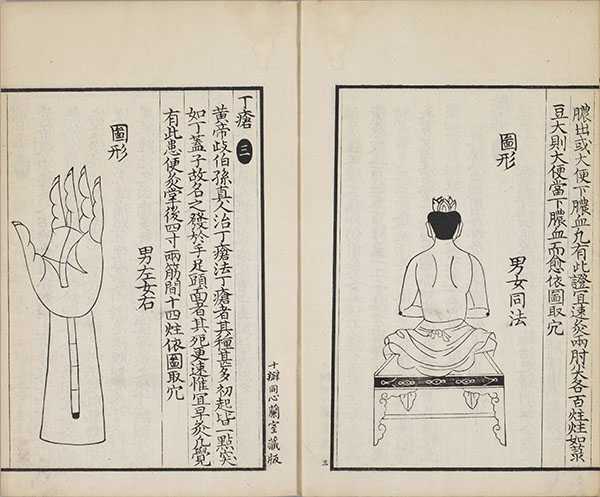 膿出或大便下膿血凡有此證宜速灸兩肘尖各百炷炷如菉
豆大則大便當下膿血而愈依圖取穴
圖形
男女同法
三
十瓣同心蘭室藏版
丁瘡 三
黃帝歧伯孫真人治丁瘡法丁瘡者其種甚多初起皆一點突
如丁蓋子故名之發於手足頭面者其死更速惟宜早灸凡覺
有此患便灸掌後四寸兩筋間十四炷依圖取穴
男左女右
圖形